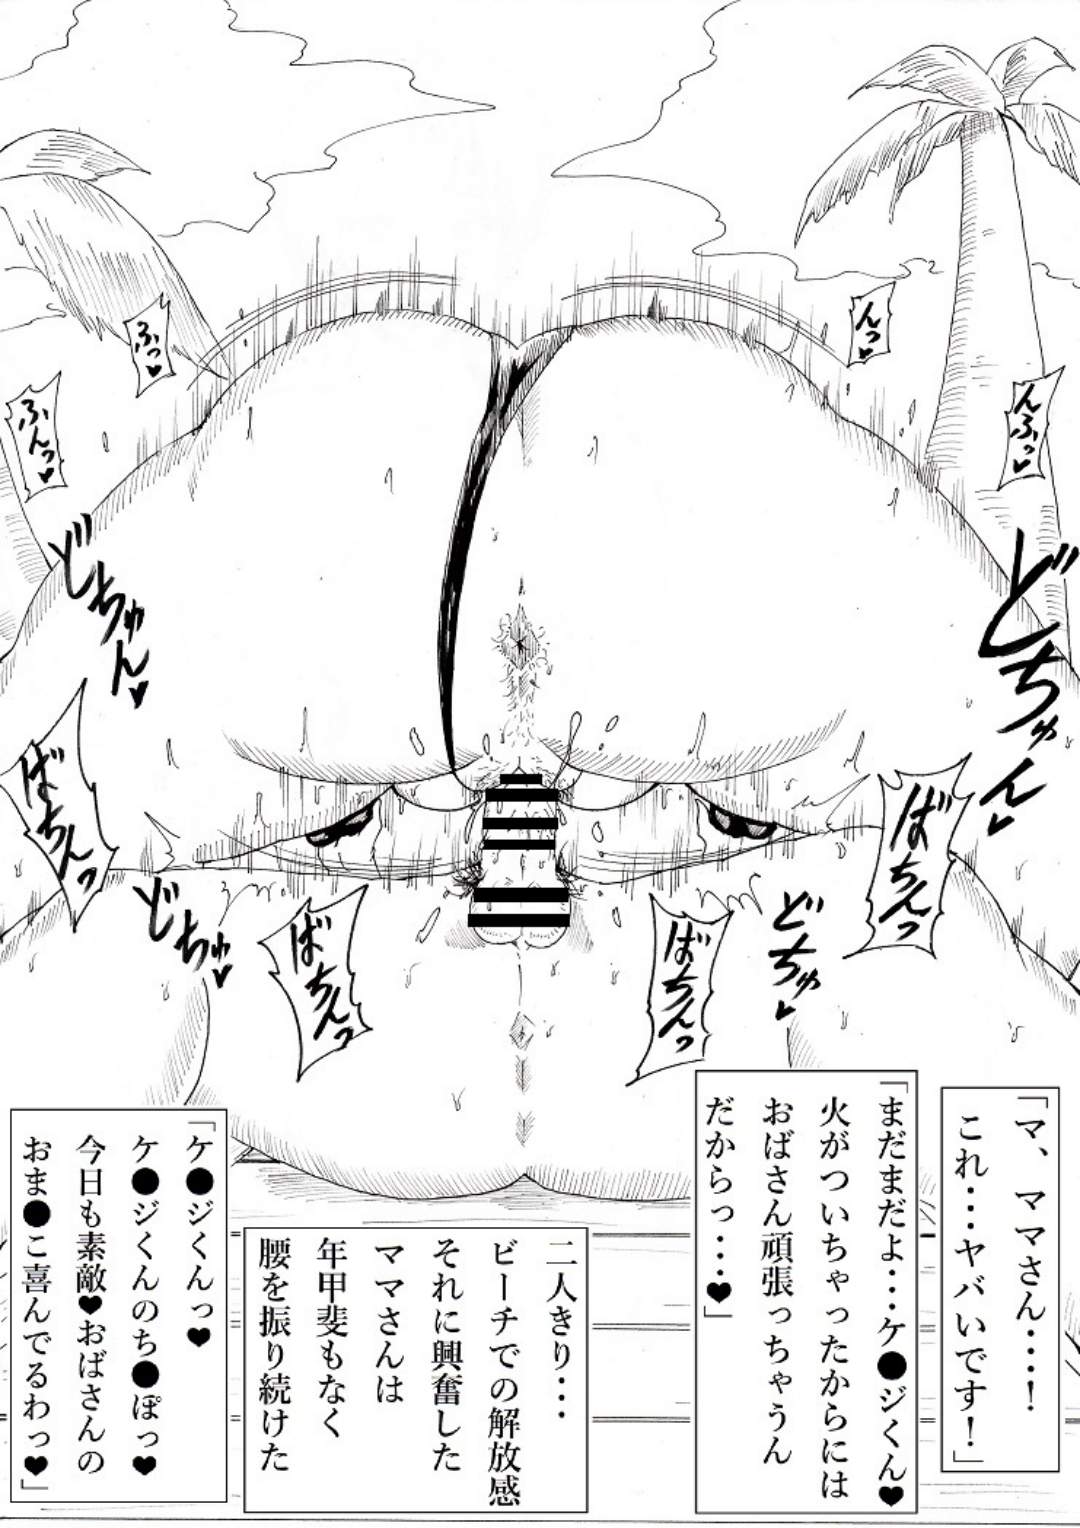 「マ、ママさん・・・！
これ・・・ヤバいです！」
「まだまだよ・・・ケ●ジくん♥
火がついちゃったからには
おばさん頑張っちゃうん
だからっ・・・♥」
二人きり・・・
ビーチでの解放感
それに興奮した
ママさんは
年甲斐もなく
腰を振り続けた
「ケ●ジくんっ♥
ケ●ジくんのち●ぽっ♥
今日も素敵♥おばさんの
おま●こ喜んでるわっ♥」
んっ♥
んふっ♥
ふっ♥
ふんっ♥
どちゅん♥
どちゅん♥
ばちんっ
ばちんっ
どちゅ♥
ばちんっ
ばちんっ
どちゅ♥